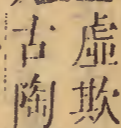 虛欺
古陶